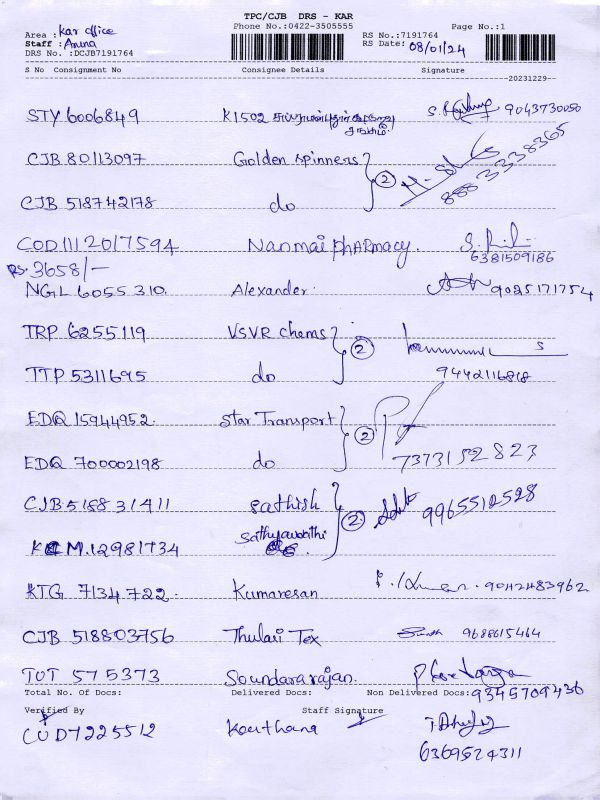 TPC/CJB DRS - KAR
Phone No.:0422-3505555 Page No.:1
Area : Kar office RS No.:7191764
Staff : Aruna RS Date: 08/01/24
DRS No. :DCJB7191764
S No Consignment No Consignee Details Signature
20231229--
STY 6006849 K1502 9043730050
CJB 80113097 Golden spinners } 2 888 3338365
CJB 518742178 do
COD1112017594 Nanmai pharmacy.
Rs.3658/- 6381509186
NGL 6055310. Alexander. 9025171754
TRP 6255119 VSVR chems } 2
TTP 5311695 do 9442116818
EDQ 15944952. Star Transport } 2
EDQ 700002198 do 7373152823
CJB 518831411 Sathish } 2 9965512528
M.12981734
KTG 7134722. Kumaresan 9042483962
CJB 518803756 Thulasi Tex 9688615464
TUT 575373 Soundararajan.
Total No. Of Docs: Delivered Docs: Non Delivered Docs: 9345709436
Verified By Staff Signature
COD7225512 Keerthana
6369524311